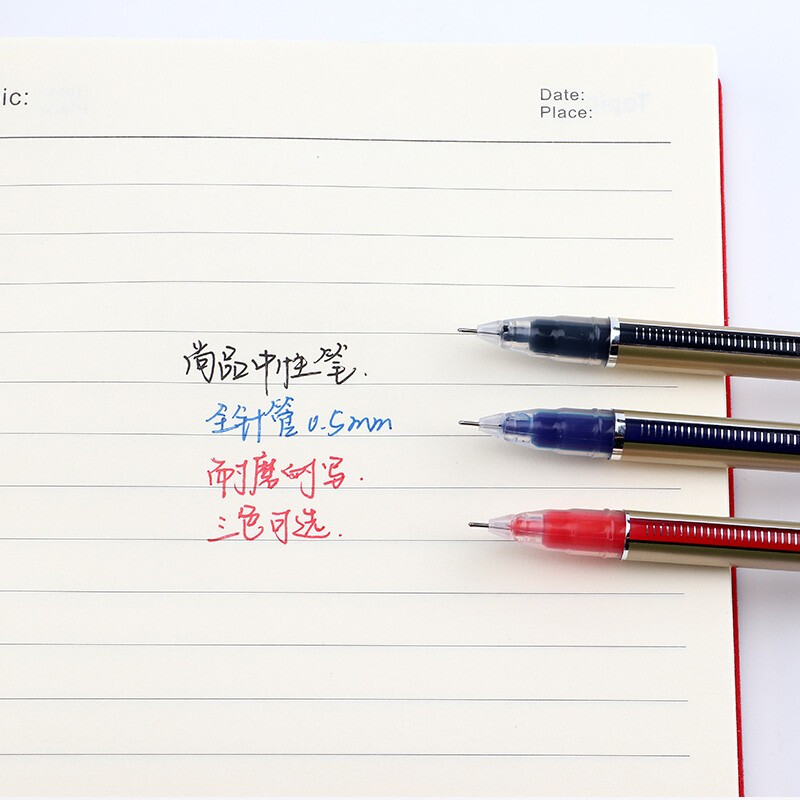 ic:
Date:
Place:
尚品中性笔.
全针管0.5mm
耐磨耐写.
三色可选.